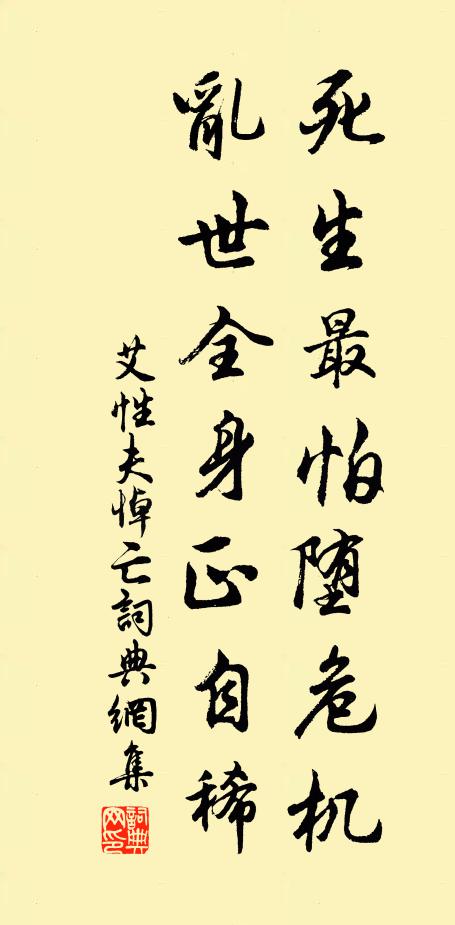 死生最怕堕危机
亂世全身正自稀
艾性夫悼亡詞典網集
詞典网印